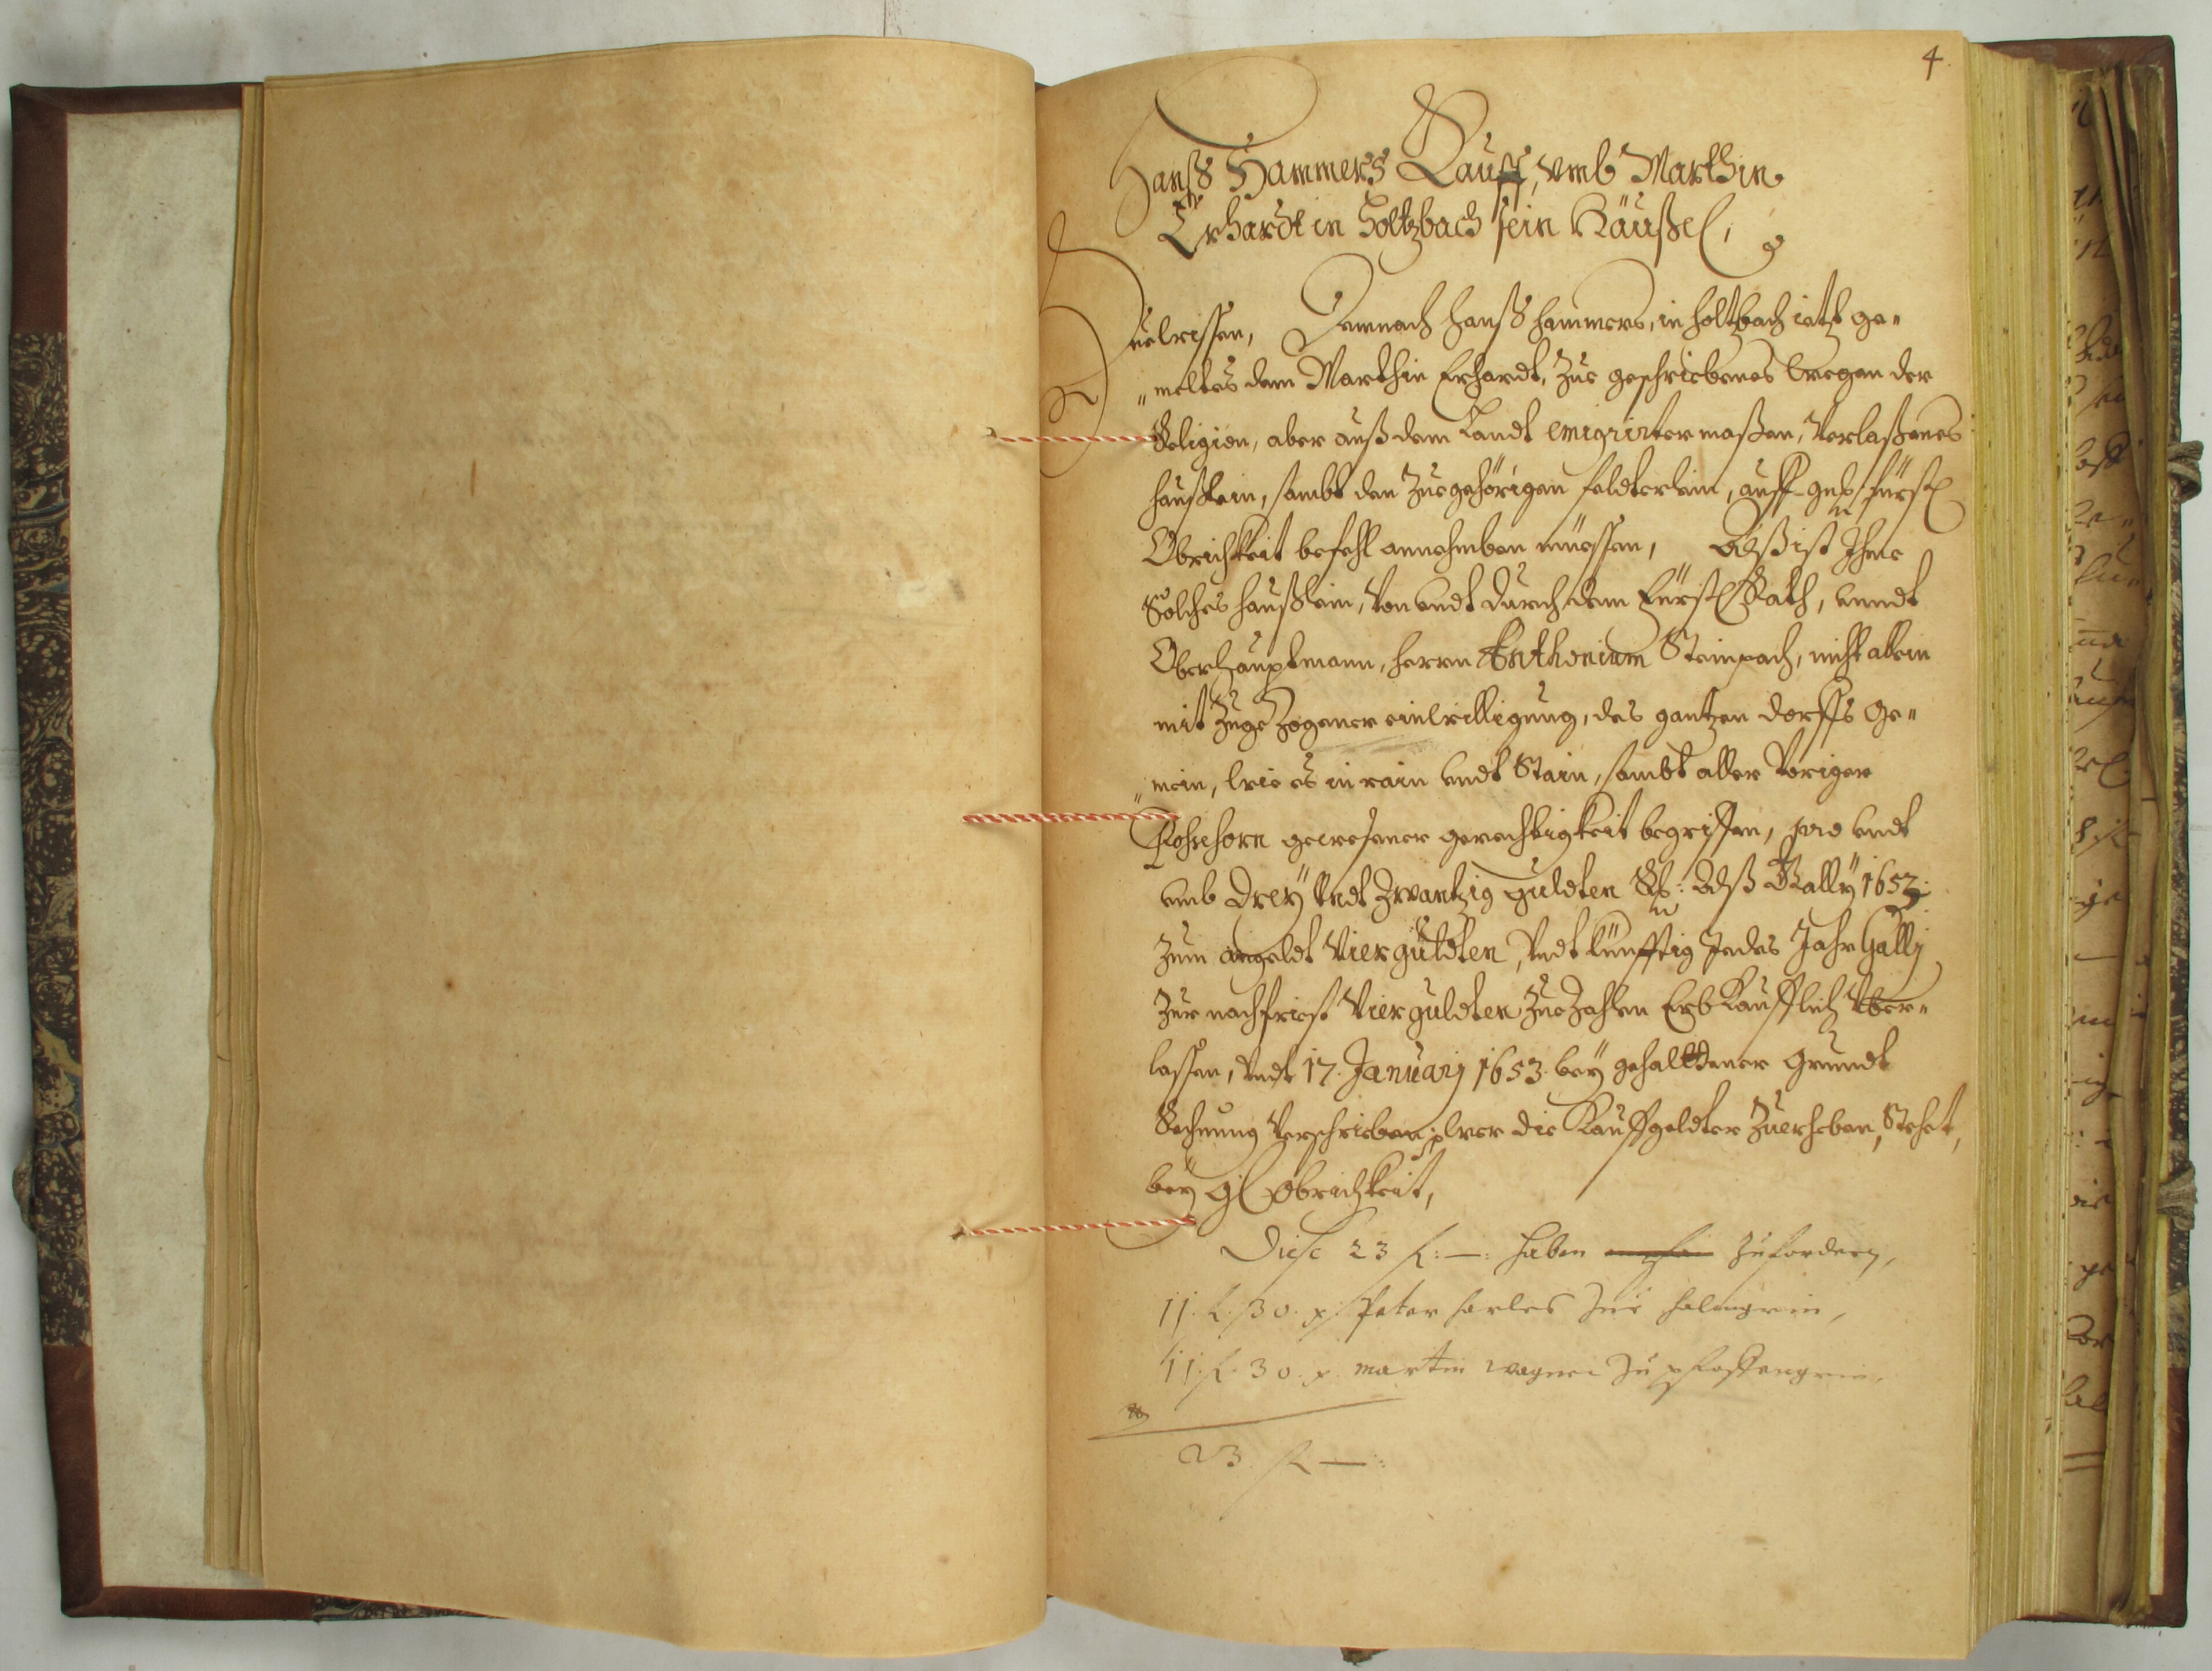 4.
Hanß Hammers Kauff, vmb Marthin
Erhardt in Holtzbach sein Häußel,
Zuewissen, Demnach Hanß Hammers, in Holtzbach ietzt ge„
„meltes dem Marthin Erhardt, zue geschriebenes wegen der
Religion, aber auß dem Landt emigrirter maßen, Verlaßenes
Haußlein, sambt den zuegehörigen feldterlein, auff fürstl
Obrichkeit befehl annehmben müessen, Alß ist Ihme
Solches Haußlein, Von vndt durch dem Fürstl Rath, vnndt
Oberhauptmann, Herrn Anthonium Steinpach, nicht allein
mit Zuge Zogener einwilligung, des gantzen dorffs Ge„
„mein, wie es in rain vndt Stain, sambt aller Voriger
gewesener gerechtigkeit begriffen, pro vndt
vmb Drey Vndt Zwantzig guldten Rh: Alß Gally 1653.
Zum angeldt Vier guldten, Vndt künfftig Jedes Jahr Gallj
Zur nachfrist Vier guldten Zue Zahlen Erb Kaufflich Vber„
lassen, Vndt 17. Januarj 1653. bey gehalltener Grundt
Rechnung Verschrieben, wer die Kauffgeldter Zuerheben, Stehet,
bey gl Obrichkeit,
Diese 23 f: —: haben zufordern,
11. f. 30. x. Peter Harles Zue
11. f. 30. x. martin wagner Zu
23. f. —: